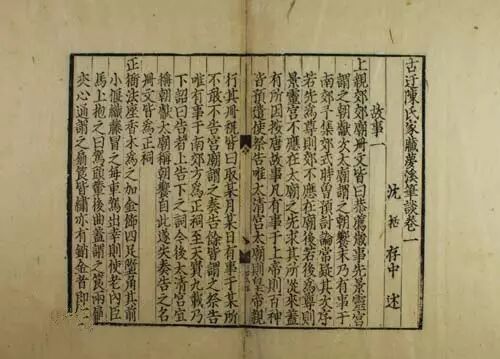 古迂陳氏家藏夢溪筆談卷一
沈括存中述
故事一
上親郊郊廟冊文皆曰恭薦歲事先景靈宮
謂之朝獻次太廟謂之朝饗末乃有事于
南郊予集郊式時曾預討論常疑其次序
若先為尊則郊不應在廟後若後為尊則
景靈宮不應在太廟之先求其所從來蓋
有所因按唐故事凡有事于上帝則百神
皆預遣使祭告唯太清宮太廟則皇帝親
行其冊祝皆曰取某月某日有事于某所
不敢不告宮廟謂之奏告餘皆謂之祭告
唯有事于南郊方為正祠至天寶九載乃
下詔曰告者上告下之詞今後太清宮宜
稱朝獻太廟稱朝饗自此遂失奏告之名
冊文皆為正祠
正衙法座香木為之加金飾四足墮角其前
小偃織藤冒之每車駕出幸則使老內臣
馬上抱之曰駕頭輦後曲蓋謂之筤兩扇
夾心通謂之扇筤皆繡亦有銷金者即